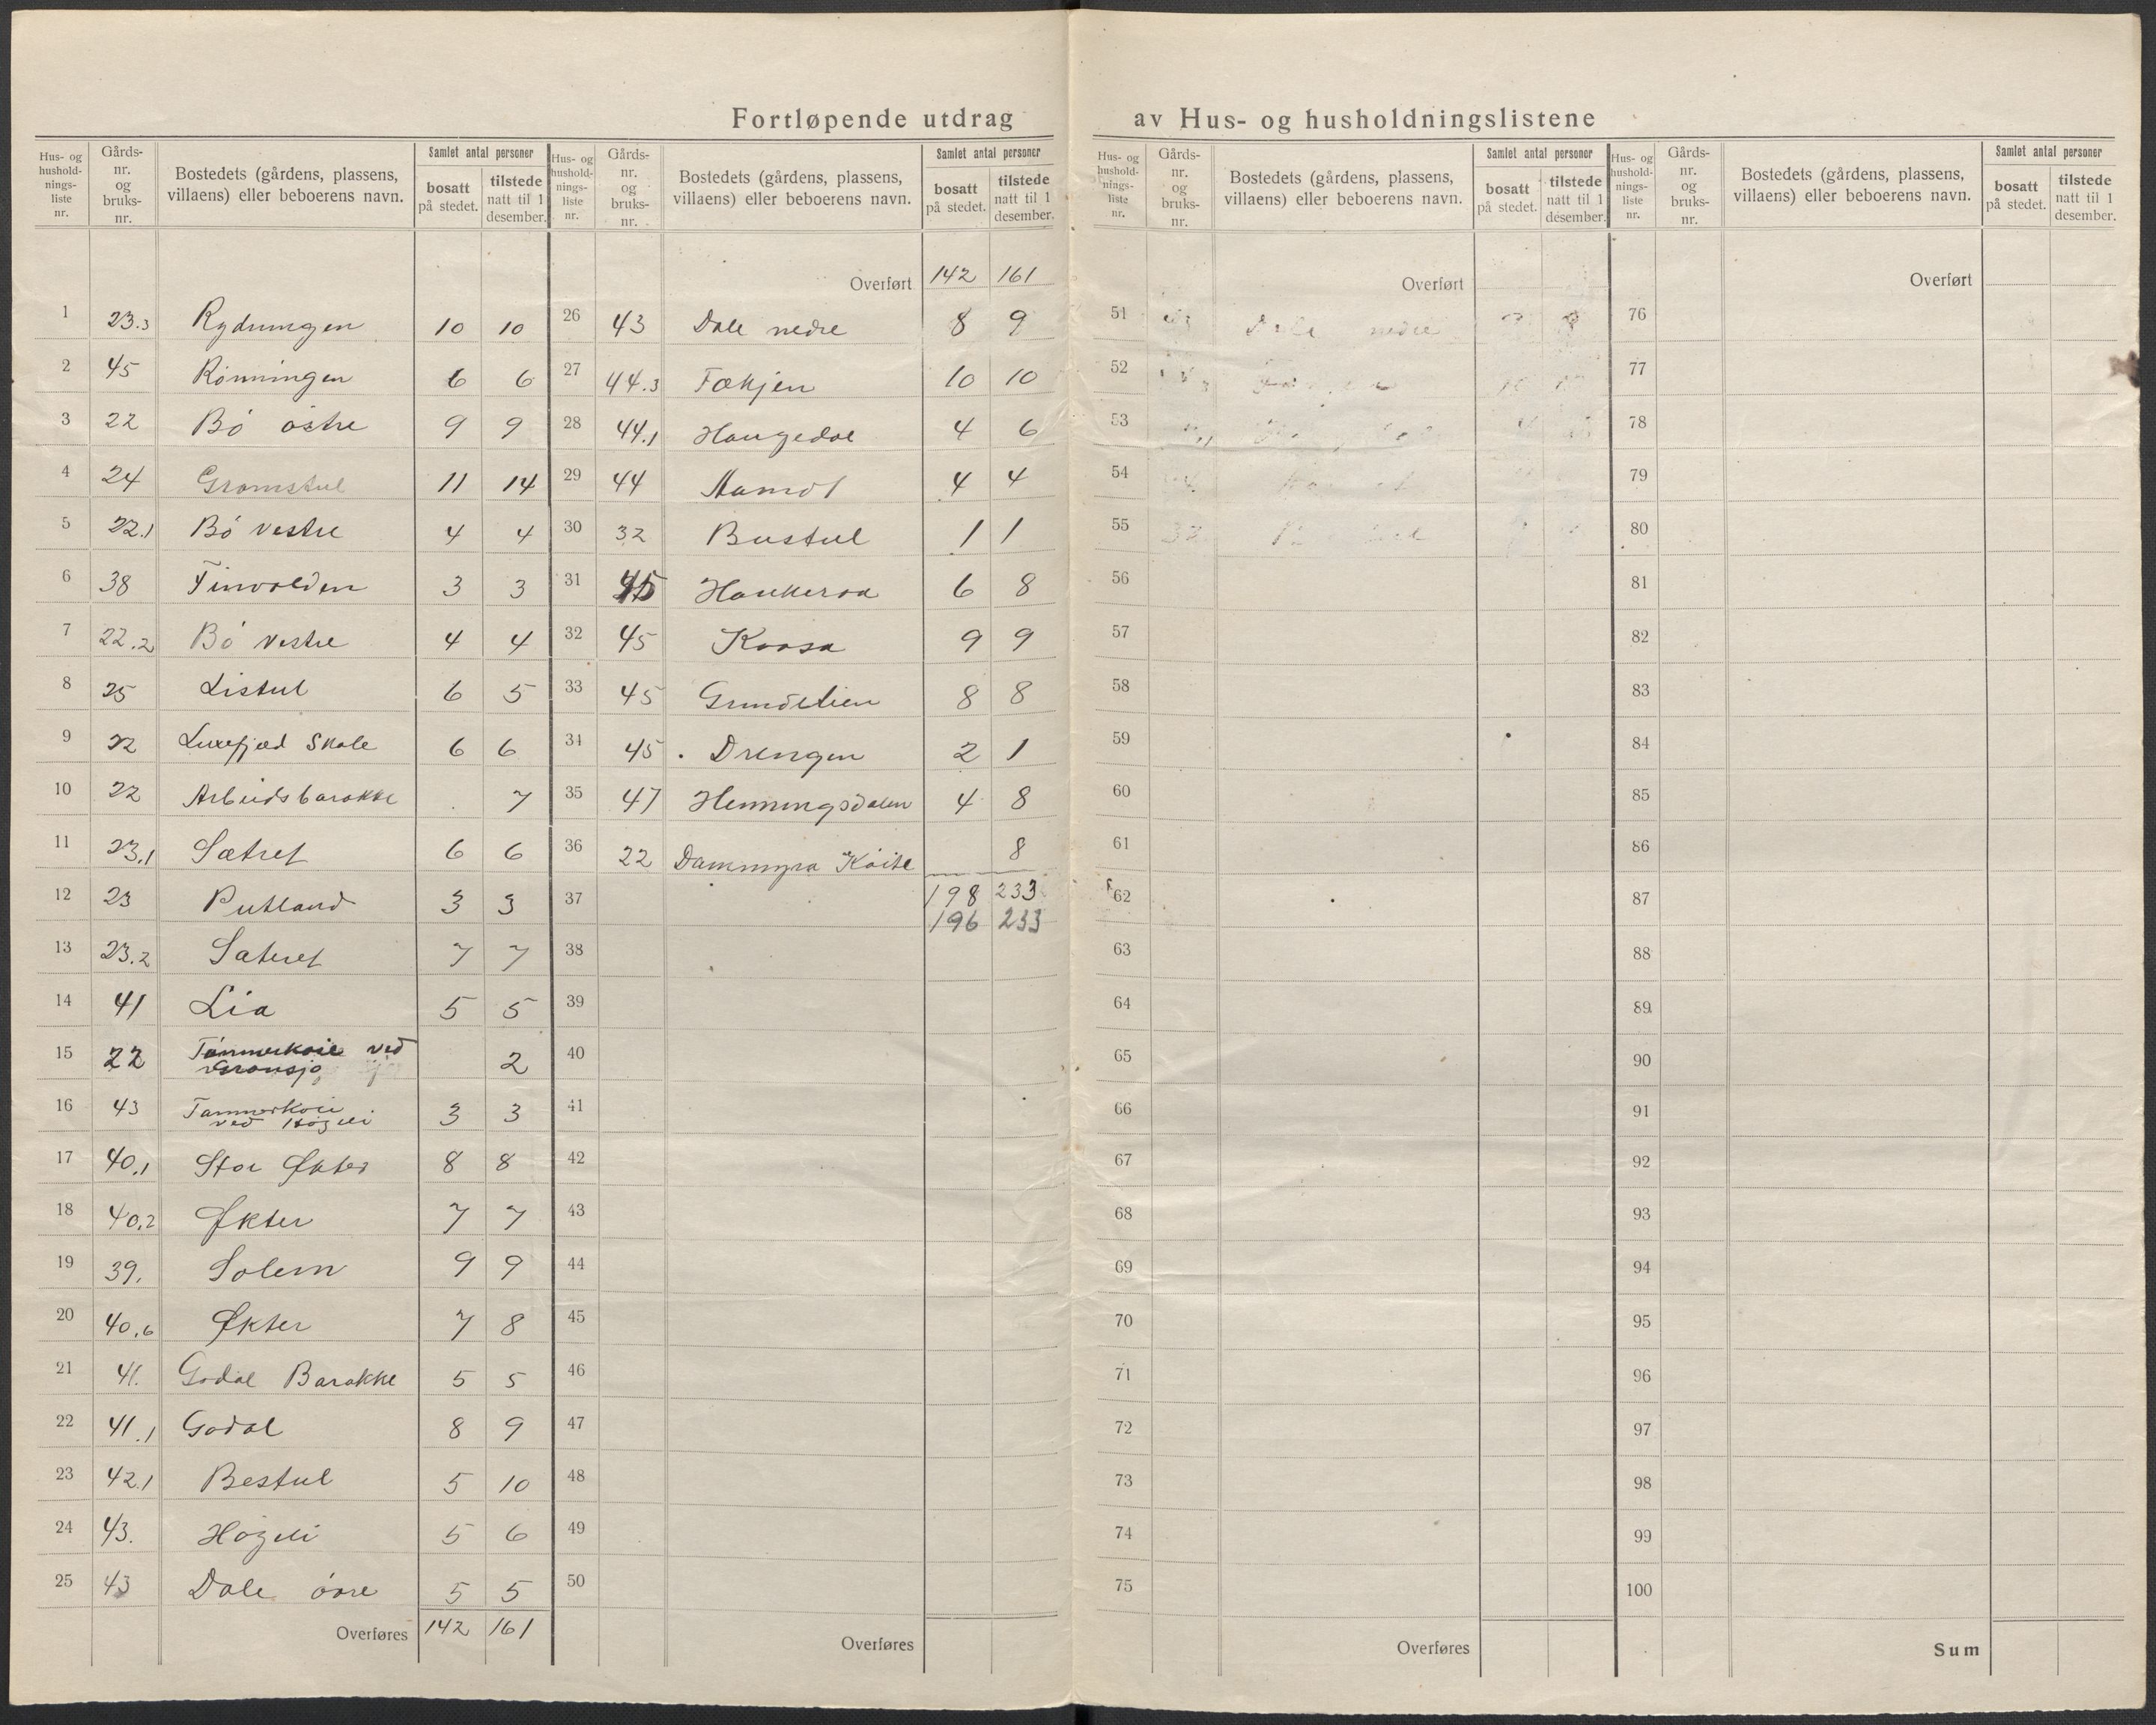 Fortløpende utdrag av Hus- og husholdningslistene
Hus- og husholdningsliste nr. | Gårdsnr. og bruksnr. | Bostedets (gårdens, plassens, villaens) eller beboerens navn. | Samlet antal personer: bosatt på stedet. | tilstede natt til 1 desember.
1 23.3 Rydningen 10 10
2 45 Rönningen 6 6
3 22 Bö östre 9 9
4 24 Gromstul 11 14
5 22.1 Bö vestre 4 4
6 38 Finvolden 3 3
7 22.2 Bö vestre 4 4
8 25 Listul 6 5
9 22 Luxefjed Skole 6 6
10 22 Arbeidsbarakke . 7
11 23.1 Sætret 6 6
12 23 Rutland 3 3
13 23.2 Sæteret 7 7
14 41 Lia 5 5
15 22 Tömmerkoie ved
Gronsjo 2
16 43 Tømmerkoie
ved Högeli 3 3
17 40.1 Stor Økter 8 8
18 40.2 Økter 7 7
19 39. Solem 9 9
20 40.6 Økter 7 8
21 41. Godal Barakke 5 5
22 41.1 Godal 8 9
23 42.1 Bestul 5 10
24 43. Högeli 5 6
25 43 Dale övre 5 5
Overføres 142 161
Hus- og husholdningsliste nr. | Gårdsnr. og bruksnr. | Bostedets (gårdens, plassens, villaens) eller beboerens navn. | Samlet antal personer: bosatt på stedet. | tilstede natt til 1 desember.
Overført 142 161
26 43 Dale nedre 8 9
27 44.3 Fækjen 10 10
28 44.1 Haugedal 4 6
29 44 Aamot 4 4
30 32 Bustul 1 1
31 45 Haukeraa 6 8
32 45 Kaasa 9 9
33 45 Grundelien 8 8
34 45 . Drengen 2 1
35 47 Henningsdalen 4 8
36 22 Dammyra Köite 8
37 198 233
196 233
38
39
40
41
42
43
44
45
46
47
48
49
50
Overføres
Hus- og husholdningsliste nr. | Gårdsnr. og bruksnr. | Bostedets (gårdens, plassens, villaens) eller beboerens navn. | Samlet antal personer: bosatt på stedet. | tilstede natt til 1 desember.
Overført
51 Dale nedre
52
53
54
55 32
56
57
58
59
60
61
62
63
64
65
66
67
68
69
70
71
72
73
74
75
Overføres
Hus- og husholdningsliste nr. | Gårdsnr. og bruksnr. | Bostedets (gårdens, plassens, villaens) eller beboerens navn. | Samlet antal personer: bosatt på stedet. | tilstede natt til 1 desember.
Overført
76
77
78
79
80
81
82
83
84
85
86
87
88
89
90
91
92
93
94
95
96
97
98
99
100
Sum